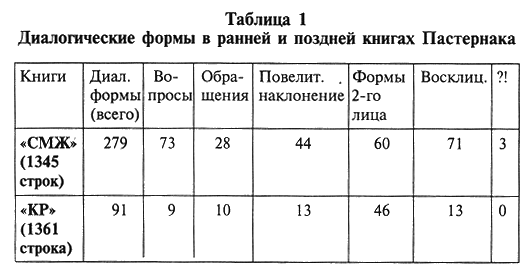 Таблица 1
Диалогические формы в ранней и поздней книгах Пастернака
Книги Диал. Во- Обра- Повелит. Формы Восклиц. ?!
формы просы щения наклонение 2-го
(всего) лица
«СМЖ» 279 73 28 44 60 71 3
(1345
строк)
«КР» 91 9 10 13 46 13 0
(1361
строка)